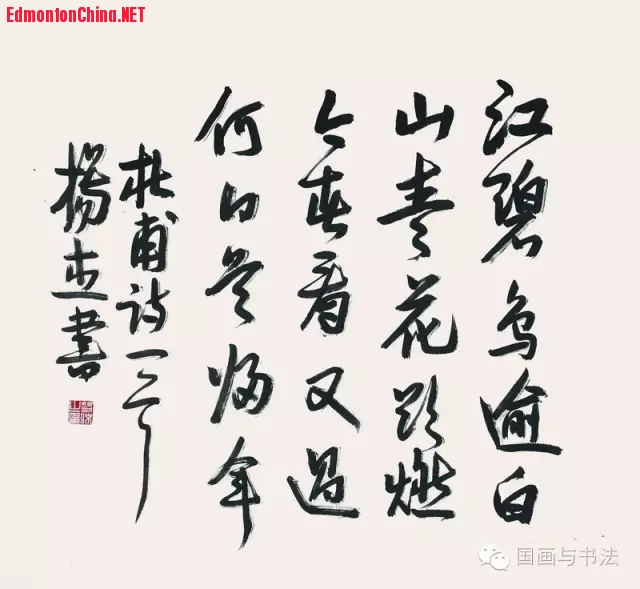 EdmontonChina.NET
江碧鸟逾白
山青花欲燃
今春看又過
何日是归年
杜甫诗一首
楊書
国画与书法